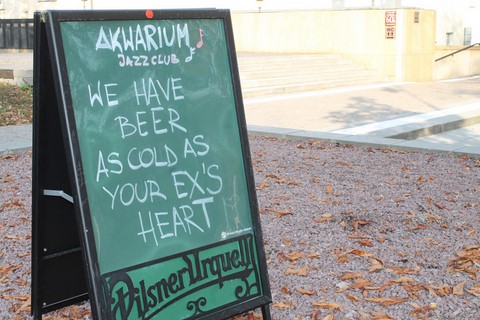 AKWARIUM
JAZZ CLUB
WE HAVE
BEER
AS COLD AS
YOUR EX'S
HEART
Pilsner Urquell